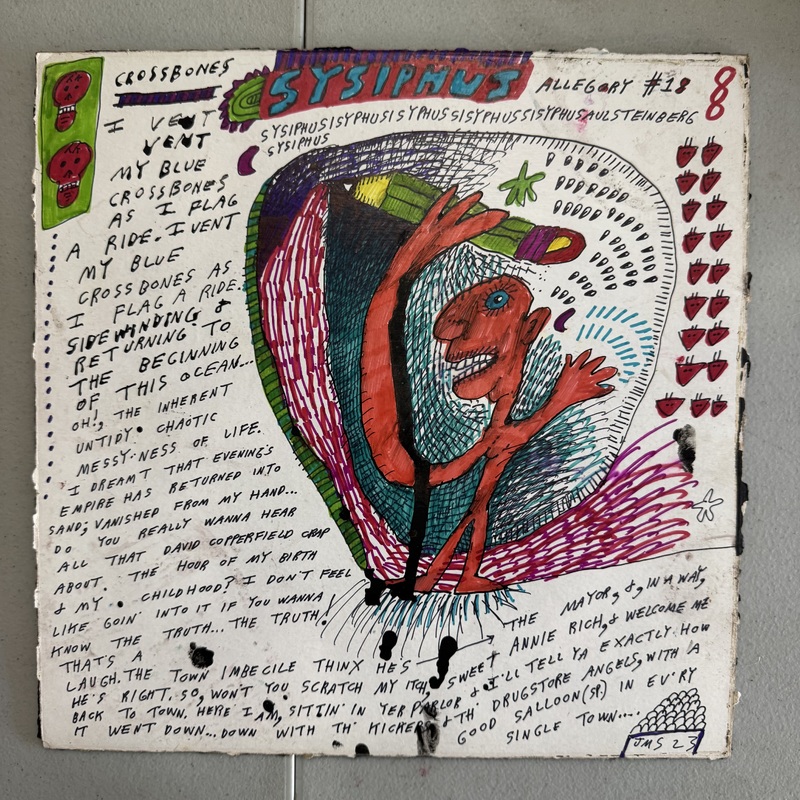 CROSSBONES
SYSIPHUS
ALLEGORY #18
8
8
SYSIPHUSISYPHUSISYPHUSSISYPHUSSISYPHUSAULSTEINBERG
SYSIPHUS
I VENT
VENT
MY BLUE
CROSSBONES
AS I FLAG
A RIDE. I VENT
MY BLUE
CROSSBONES AS
I FLAG A RIDE.
SIDEWINDING &
RETURNING TO
THE BEGINNING
OF THIS OCEAN...
OH!, THE INHERENT
UNTIDY CHAOTIC
MESSY-NESS OF LIFE.
I DREAMT THAT EVENING'S
EMPIRE HAS RETURNED INTO
SAND; VANISHED FROM MY HAND...
DO YOU REALLY WANNA HEAR
ALL THAT DAVID COPPERFIELD CRAP
ABOUT. THE HOUR OF MY BIRTH
& MY CHILDHOOD? I DON'T FEEL
LIKE GOIN' INTO IT IF YOU WANNA
KNOW THE TRUTH... THE TRUTH!
THAT'S A
LAUGH. THE TOWN IMBECILE THINX HE'S THE MAYOR, &, IN A WAY,
HE'S RIGHT. SO, WON'T YOU SCRATCH MY ITCH, SWEET ANNIE RICH, & WELCOME ME
BACK TO TOWN. HERE I AM, SITTIN' IN YER PARLOR & I'LL TELL YA EXACTLY HOW
IT WENT DOWN... DOWN WITH TH' KICKERS & TH' DRUGSTORE ANGELS, WITH A
GOOD SALLOON(SP.) IN EV'RY
SINGLE TOWN....
JMS 23